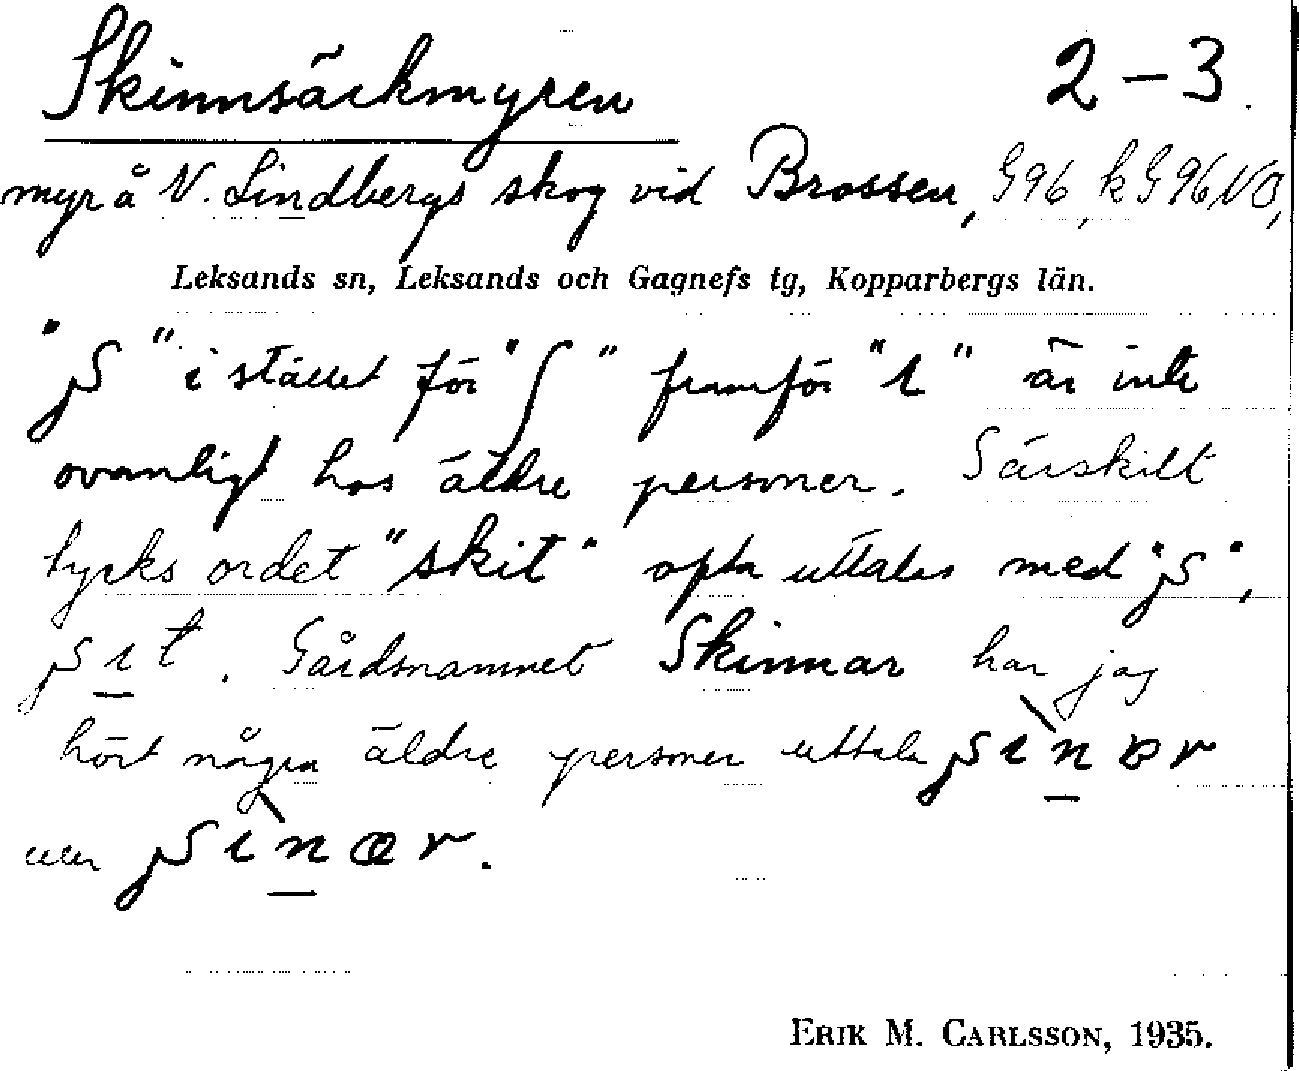 Skinnsäckmyren 2-3.
myr å N. Lindbergs skog vid Brossen, G96, k G96 NO,
Leksands sn, Leksands och Gagnefs tg, Kopparbergs län.
"ʂ" i stället för "ʃ" framför "ɩ" är inte
ovanligt hos äldre personer. Särskilt
tycks ordet "skit" ofta uttalas med "ʂ",
ʂɩt. Gårdsnamnet Skinnar har jag
hört några äldre personer uttala
eller
ERIK M. CARLSSON, 1935.